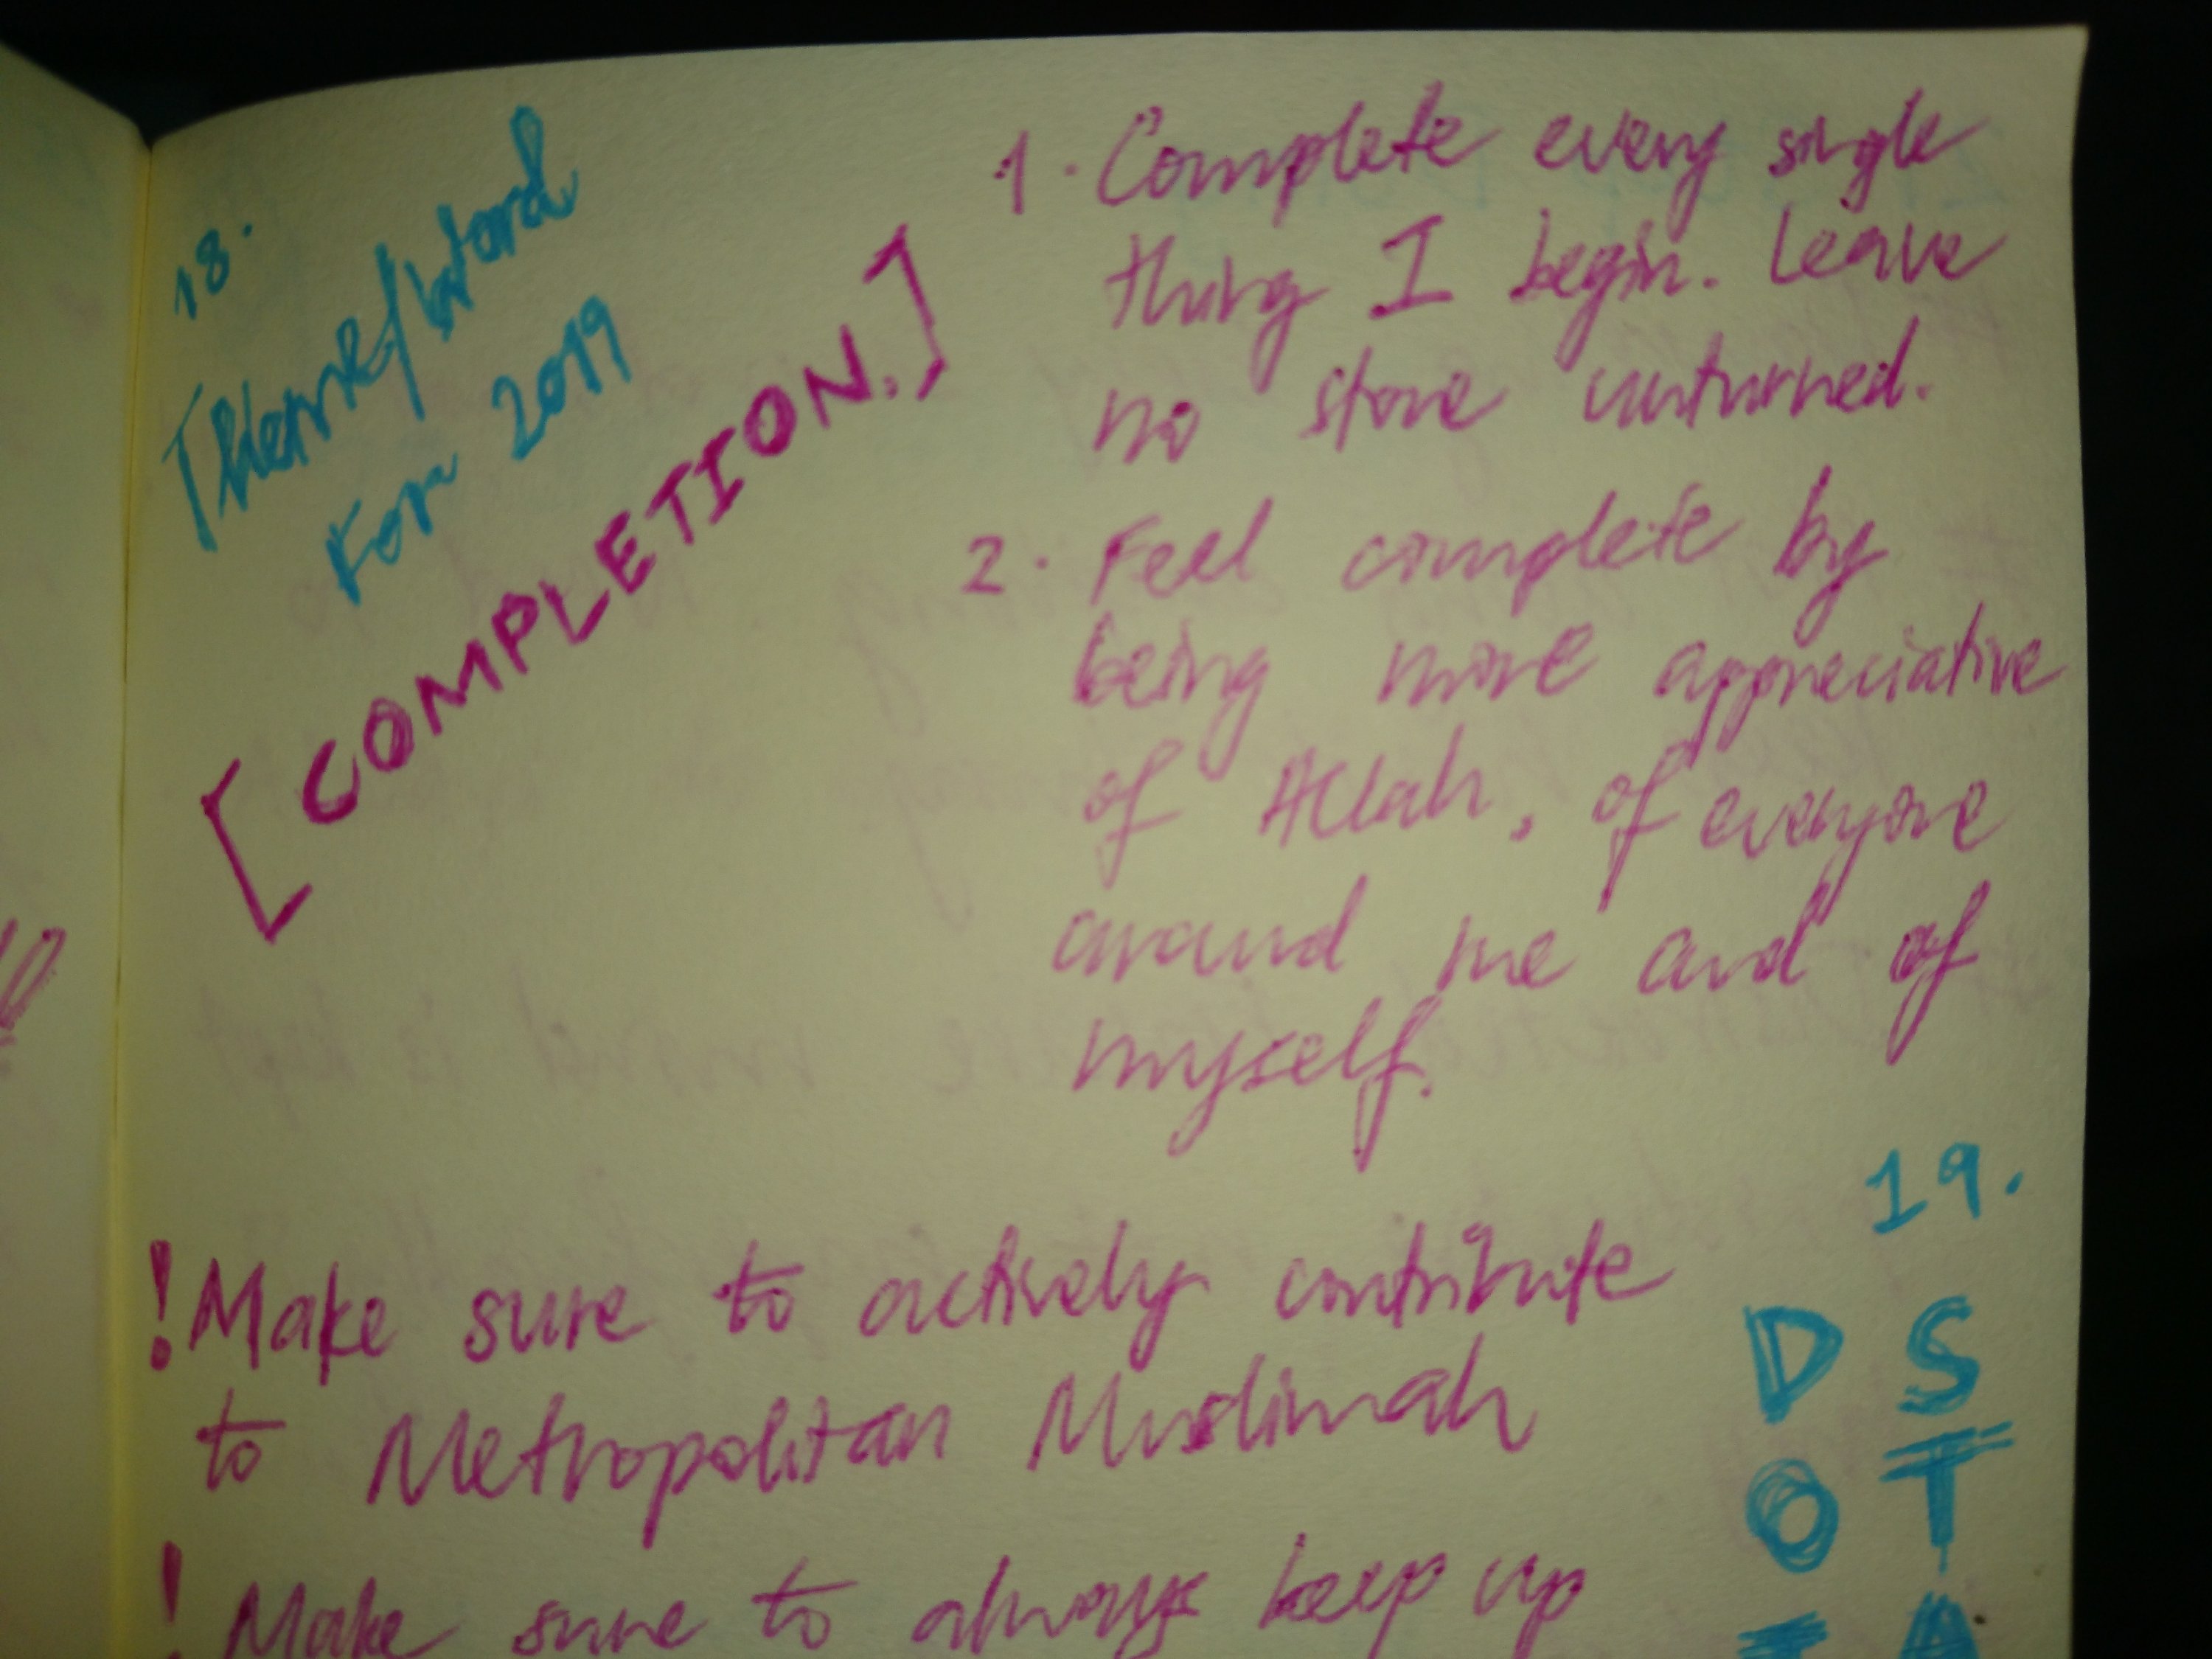 18.
Theme/Word
For 2019
[COMPLETION.]
1. Complete every single
thing I begin. Leave
no stone unturned.
2. Feel complete by
being more appreciative
of Allah, of everyone
around me and of
myself.
! Make sure to actively contribute
to Metropolitan Muslimah
! Make sure to always keep up
19.
D S
O T